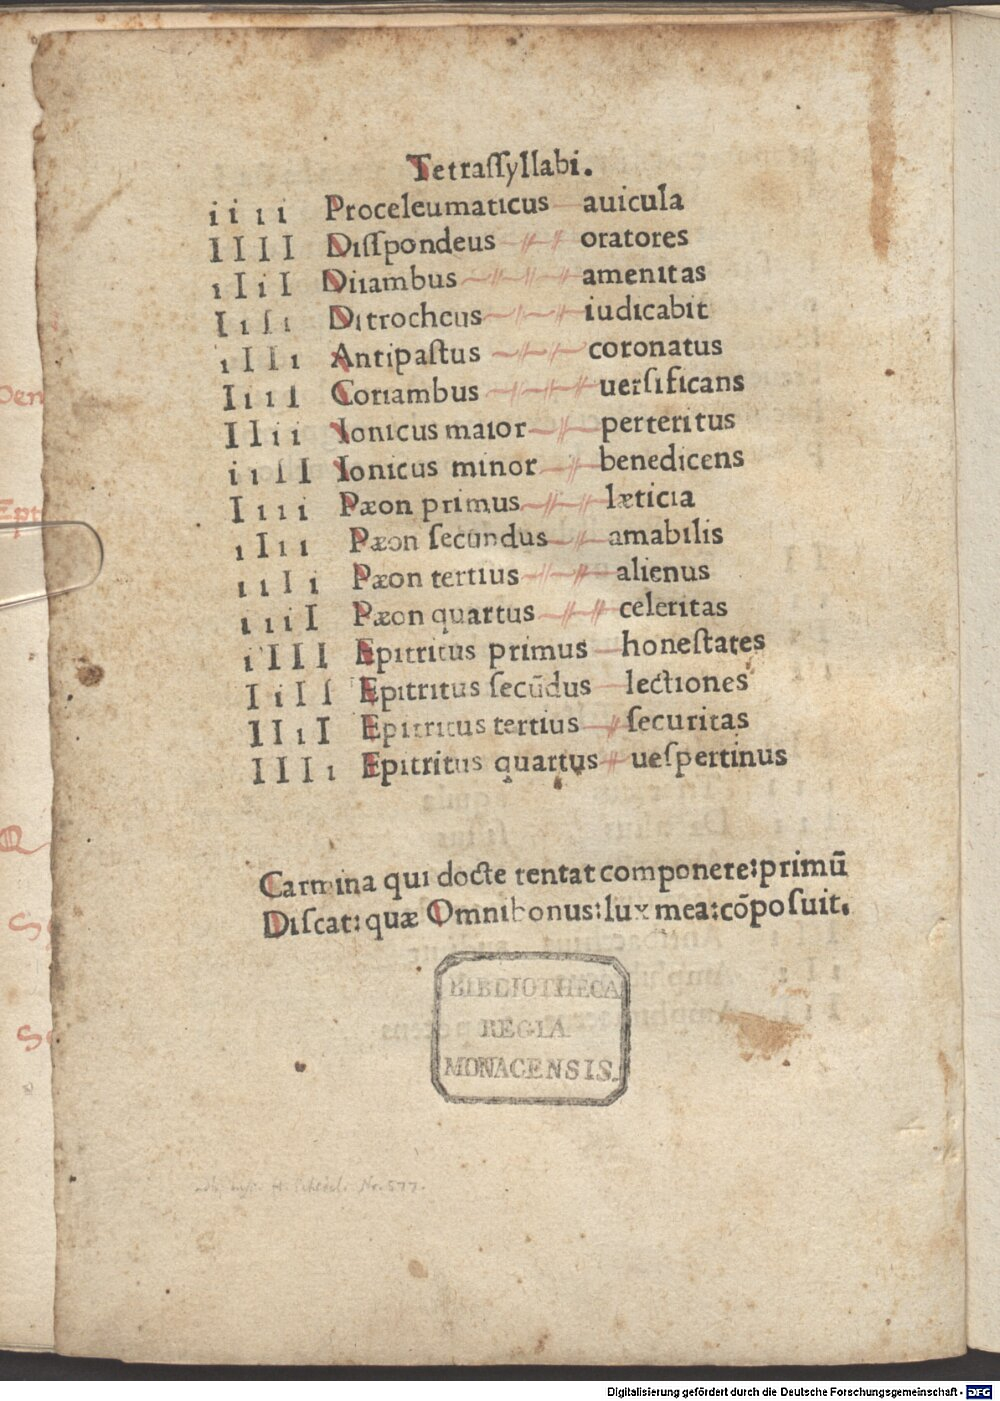 Tetraſſyllabi.
i i ı ı Proceleumaticus auicula
I I I I Diſſpondeus oratores
ı I i I Diiambus amenitas
I ı ſ ı Ditrocheus iudicabit
ı I I ı Antipaſtus coronatus
I ı ı I Coriambus uerſificans
I I i i Ionicus maior perteritus
i ı ſ I Ionicus minor benedicens
I ı ı ı Pæon primus læticia
ı I ı ı Pæon ſecundus amabilis
ı ı I ı Pæon tertius alienus
ı ı i I Pæon quartus celeritas
i I I I Epitritus primus honeſtates
I i I ſ Epitritus ſecūdus lectiones
I I ı I Epitritus tertius ſecuritas
I I I ı Epitritus quartus ueſpertinus
Carmina qui docte tentat componere: primū
Diſcat: quæ Omnibonus: lux mea: cōpoſuit.
BIBLIOTHECA
REGIA
MONACENSIS.
Digitalisierung gefördert durch die Deutsche Forschungsgemeinschaft - DFG